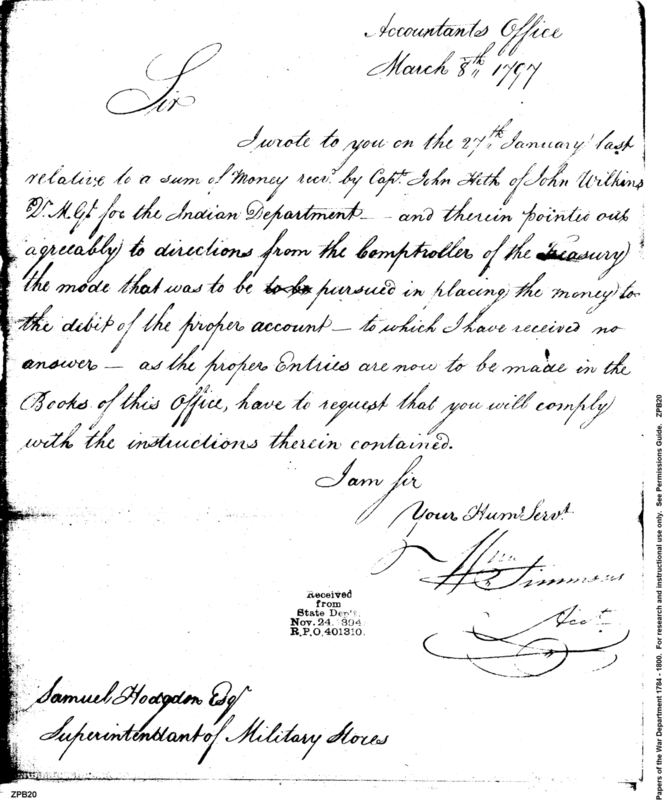 Accountants Office
March 8th 1797
Sir
I wrote to you on the 27th January last
relative to a sum of Money recd. by Capt. John Heth of John Wilkins
Qr. M. Gl. for the Indian Department — and therein pointed out
agreeably to directions from the Comptroller of the Treasury
the mode that was to be to be pursued in placing the money to
the debit of the proper account — to which I have received no
answer — as the proper Entries are now to be made in the
Books of this Office, have to request that you will comply
with the instructions therein contained.
I am Sir
Your Humb. Servt.
Wm Simmons
Acct.
Received
from
State Dep't.
Nov. 24. 1894
R.P.O. 401310.
Samuel Hodgdon Esqr
Superintendant of Military Stores
ZPB20
Papers of the War Department 1784 - 1800. For research and instructional use only. See Permissions Guide. ZPB20